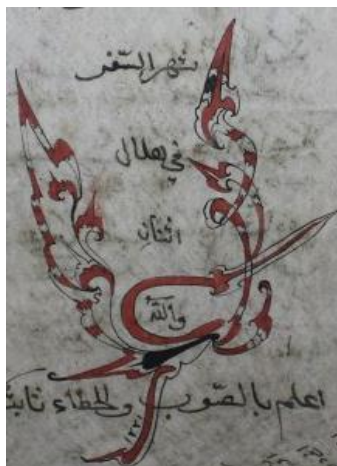 شهر السفر
في هلال
اثنان
والله
اعلم بالصوب والخطاء ثابت